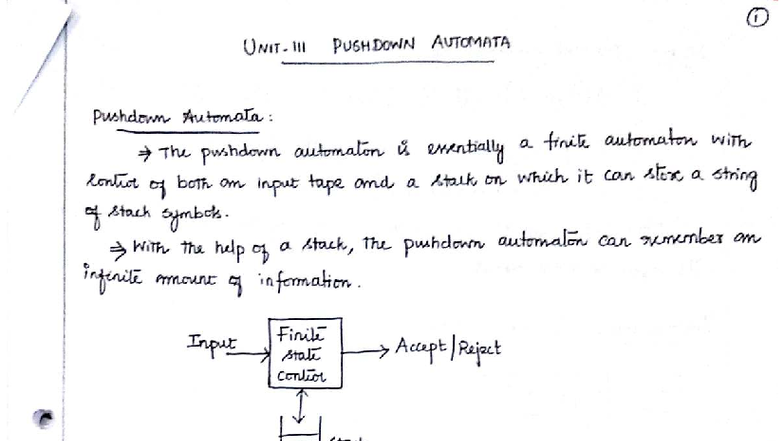 1
UNIT-III PUSHDOWN AUTOMATA
Pushdown Automata:
⇒ The pushdown automaton is essentially a finite automaton with
control of both an input tape and a stack on which it can store a string
of stack symbols.
⇒ With the help of a stack, the pushdown automaton can remember an
infinite amount of information.
Input
Finite
state
control
Accept/Reject